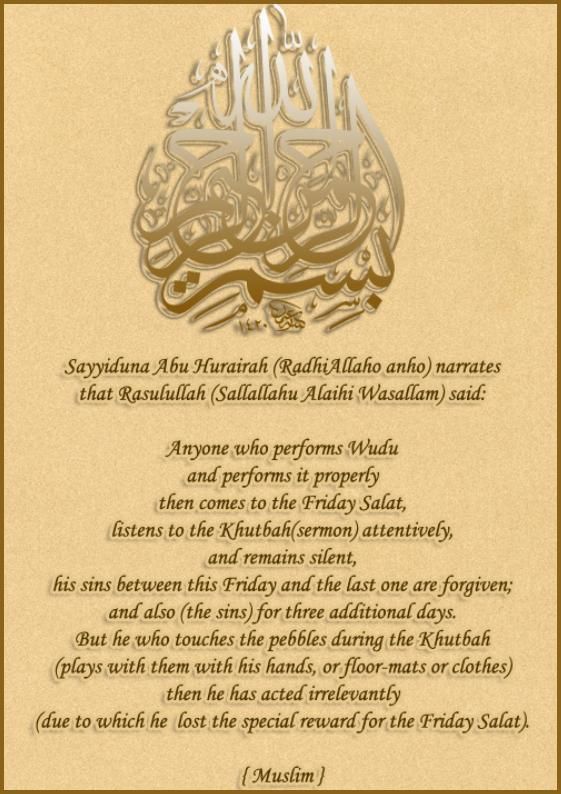 بسم الله الرحمن الرحيم
١٤٢٠
Sayyiduna Abu Hurairah (RadhiAllaho anho) narrates
that Rasulullah (Sallallahu Alaihi Wasallam) said:
Anyone who performs Wudu
and performs it properly
then comes to the Friday Salat,
listens to the Khutbah(sermon) attentively,
and remains silent,
his sins between this Friday and the last one are forgiven;
and also (the sins) for three additional days.
But he who touches the pebbles during the Khutbah
(plays with them with his hands, or floor-mats or clothes)
then he has acted irrelevantly
(due to which he lost the special reward for the Friday Salat).
{ Muslim }